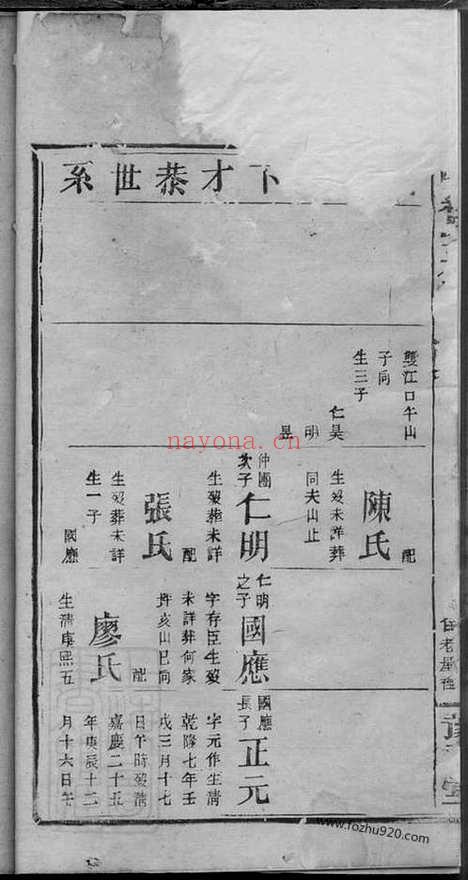 下才泰世系
雙江口午山
子向
生三子
仁昊
明
昱
配
陳氏
生歿未詳葬
同夫山止
仲團
次子
仁明
生歿葬未詳
配
張氏
生歿葬未詳
生一子
國應
仁明
之子
國應
字存臣生歿
未詳葬何家
亥山巳向
配
廖氏
生清康熙五
國應
長子
正元
字元作生清
乾隆七年壬
戌三月十七
日午時歿清
嘉慶二十五
年庚辰十二
月十六日午
nayona.cn
www.fozhu920.com